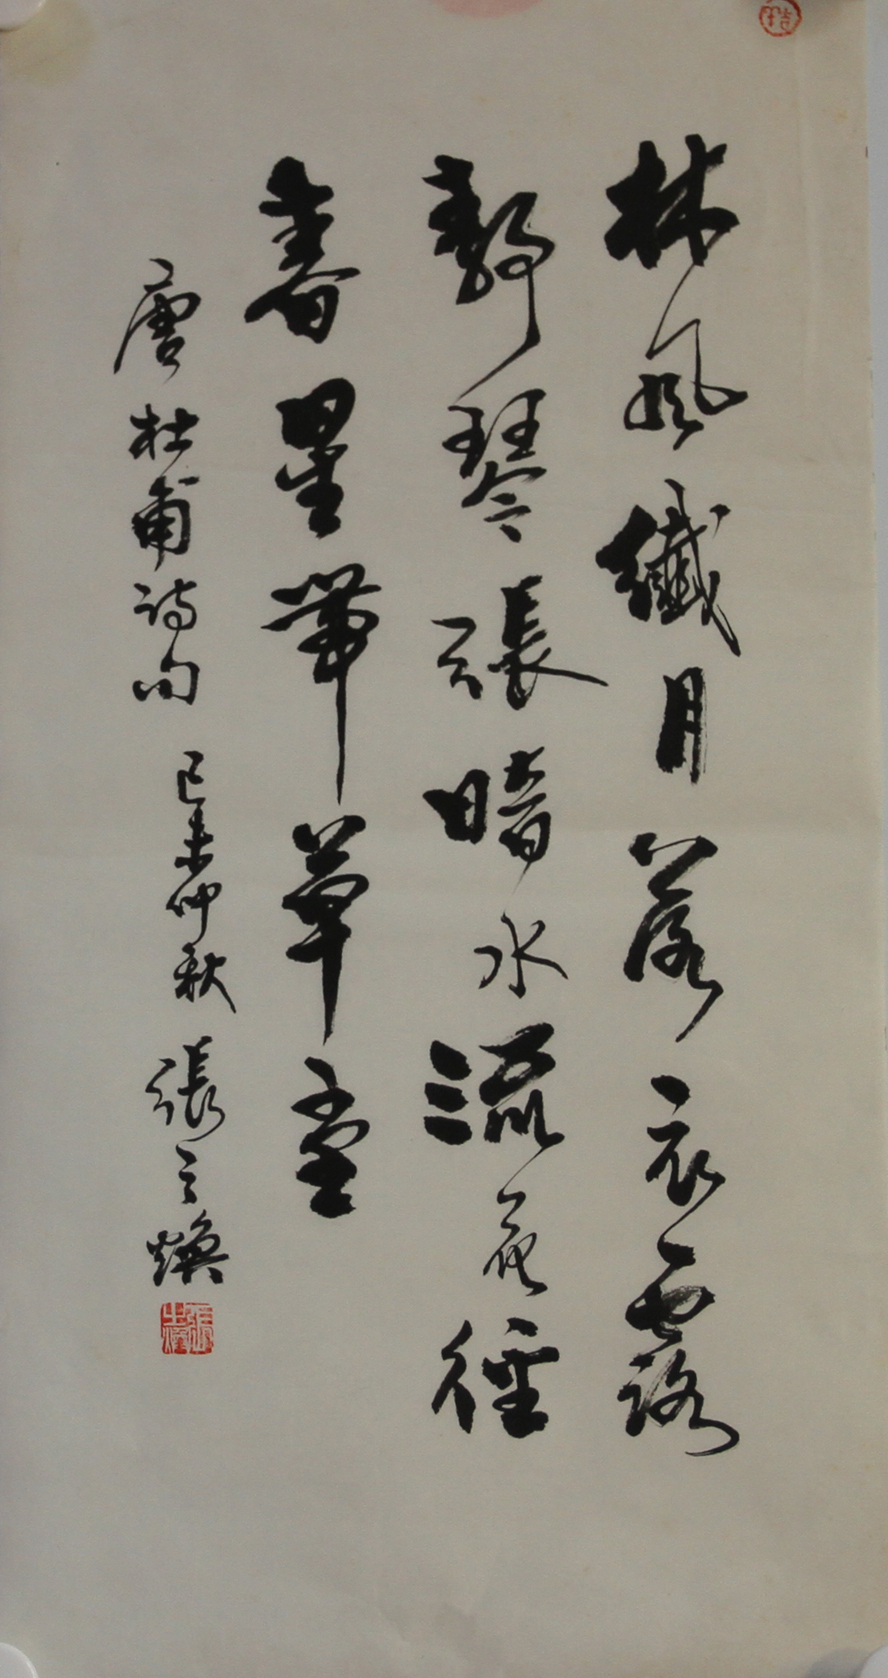 林風纖月落衣露
靜琴張暗水流花徑
春星帶草堂
唐杜甫詩句 己未仲秋 張之煥